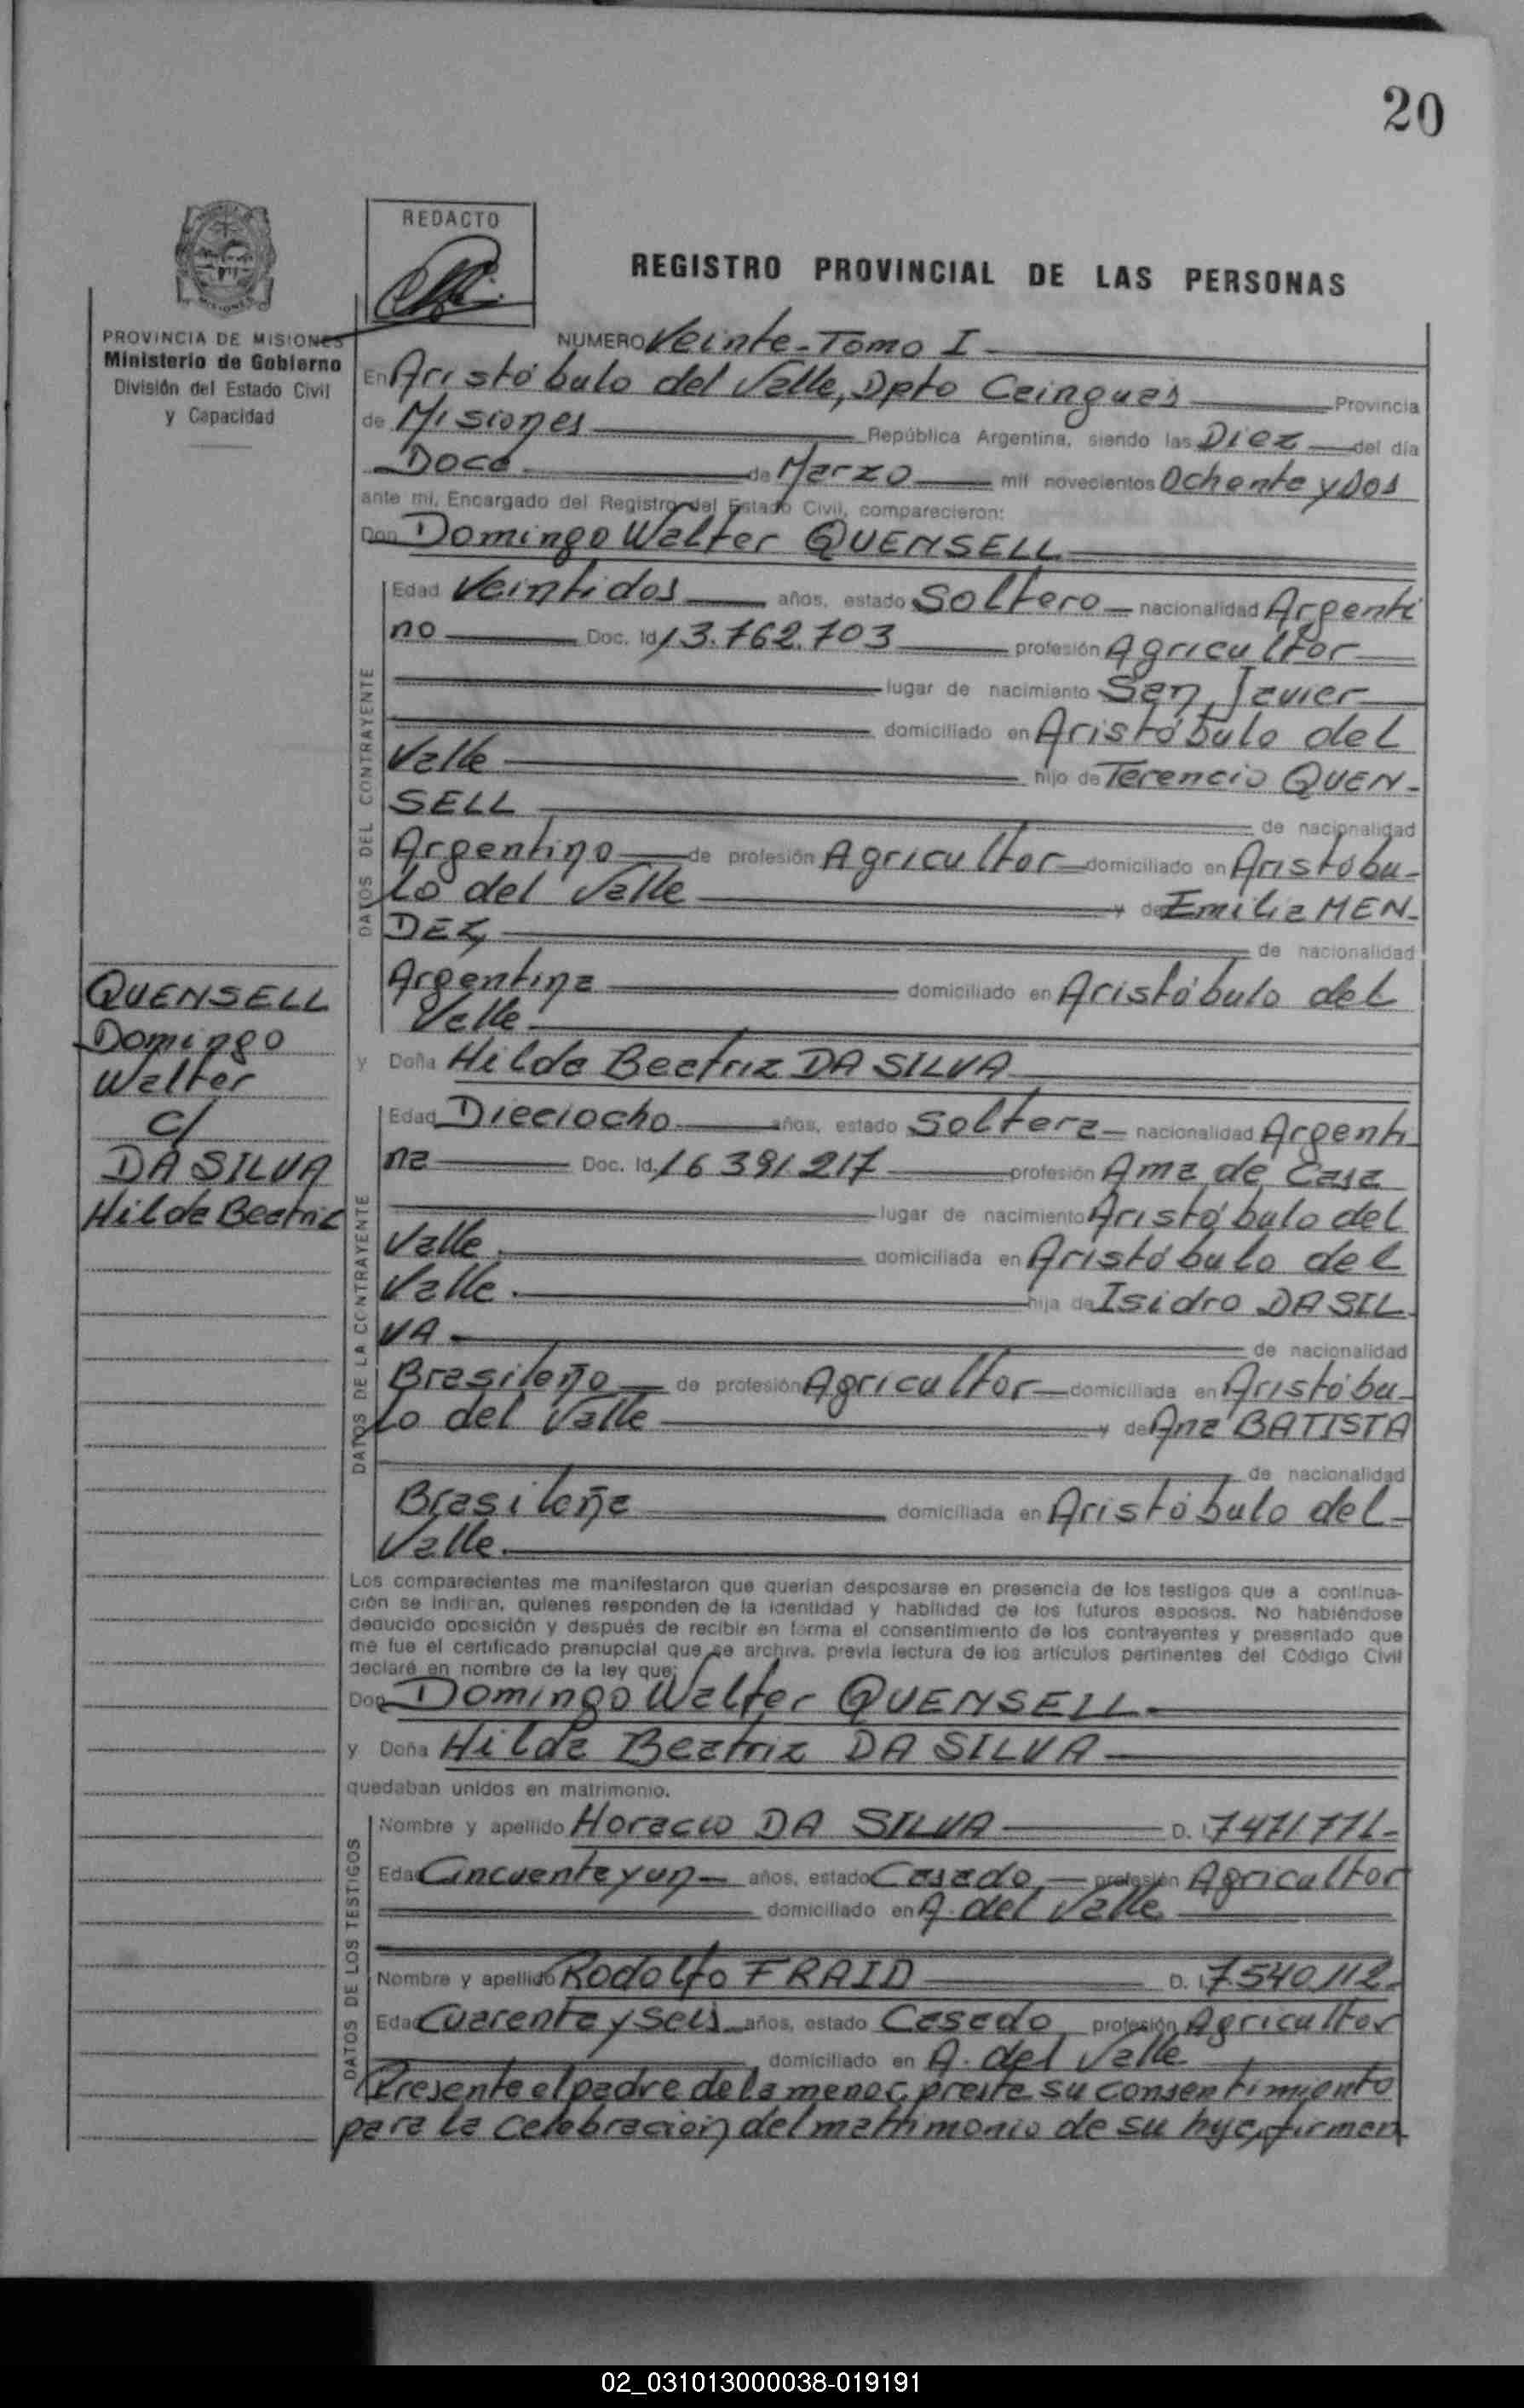 20
REDACTO
REGISTRO PROVINCIAL DE LAS PERSONAS
PROVINCIA DE MISIONES
Ministerio de Gobierno
División del Estado Civil
y Capacidad
NUMERO Veinte-Tomo I
En Aristóbulo del Valle, Dpto Cainguás Provincia
de Misiones República Argentina, siendo las Diez del día
Doce de Marzo mil novecientos Ochenta y Dos
ante mí, Encargado del Registro del Estado Civil, comparecieron:
Don Domingo Walter QUENSELL
DATOS DEL CONTRAYENTE
Edad Veintidos años, estado Soltero nacionalidad Argenti
no Doc. Id 13.762.703 profesión Agricultor
lugar de nacimiento San Javier
domiciliado en Aristóbulo del
Valle hijo de Terencio QUEN-
SELL de nacionalidad
Argentino de profesión Agricultor domiciliado en Aristóbu-
lo del Valle y de Emilia MEN-
DEZ de nacionalidad
Argentina domiciliado en Aristóbulo del
Valle.
QUENSELL
Domingo
Walter
c/
DA SILVA
Hilda Beatriz
y Doña Hilda Beatriz DA SILVA
DATOS DE LA CONTRAYENTE
Edad Dieciocho años, estado Soltera nacionalidad Argenti
na Doc. Id. 16 391.217 profesión Ama de Casa
lugar de nacimiento Aristóbulo del
Valle domiciliada en Aristóbulo del
Valle. hija de Isidro DA SIL
VA de nacionalidad
Brasileño de profesión Agricultor domiciliada en Aristóbu-
lo del Valle y de Ana BATISTA
de nacionalidad
Brasileña domiciliada en Aristóbulo del
Valle.
Los comparecientes me manifestaron que querían desposarse en presencia de los testigos que a continua-
ción se indican, quienes responden de la identidad y habilidad de los futuros esposos. No habiéndose
deducido oposición y después de recibir en forma el consentimiento de los contrayentes y presentado que
me fue el certificado prenupcial que se archiva, previa lectura de los artículos pertinentes del Código Civil
declaré en nombre de la ley que:
Don Domingo Walter QUENSELL
y Doña Hilda Beatriz DA SILVA
quedaban unidos en matrimonio.
DATOS DE LOS TESTIGOS
Nombre y apellido Horacio DA SILVA D. I. 7471771-
Edad Cincuenta y un años, estado Casado profesión Agricultor
domiciliado en A. del Valle
Nombre y apellido Rodolfo FRAID D. I. 7.540.112.
Edad Cuarenta y Seis años, estado Casado profesión Agricultor
domiciliado en A. del Valle
Presente el padre de la menor, presta su consentimiento
para la celebración del matrimonio de su hija, firman
02_031013000038-019191